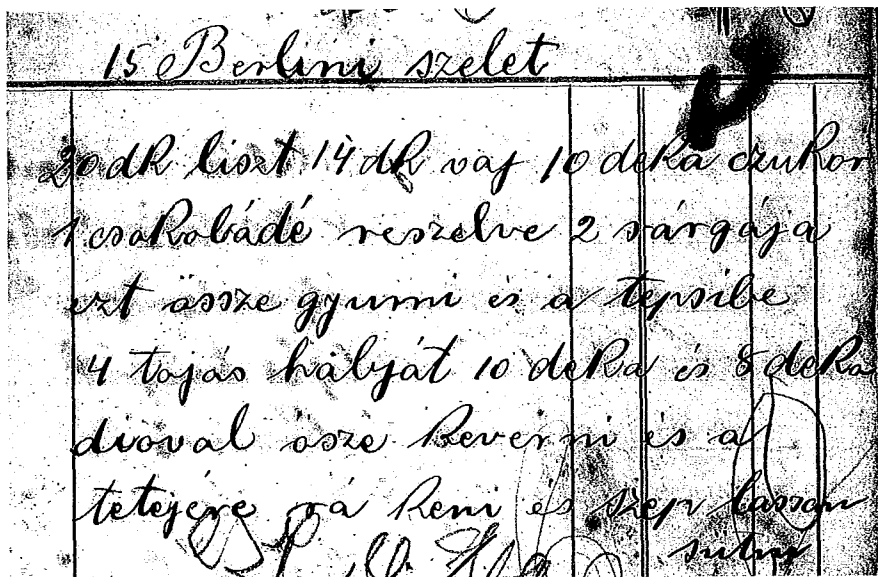 15 Berlini szelet
20 dk liszt 14 dk vaj 10 deka czukor
1 csokoládé reszelve 2 sárgája
ezt össze gyurni és a tepsibe
4 tojás hábját 10 deka és 8 deka
dioval össze keverni és a
tetejére rá keni és szép lassan
sütni